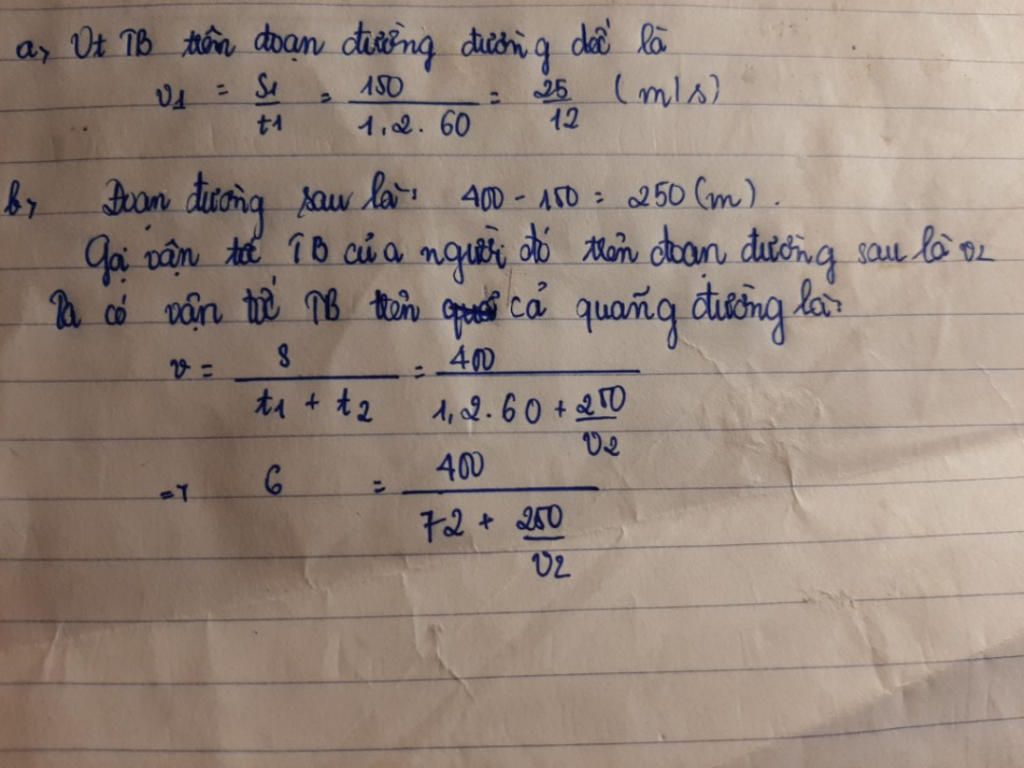 a, Vt TB trên đoạn đường đường dốc là
v1 = S1/t1 = 150/1,2.60 = 25/12 (m/s)
b, Đoạn đường sau là: 400 - 150 = 250 (m).
Gọi vận tốc TB của người đó trên đoạn đường sau là v2
Ta có vận tốc TB trên cả quãng đường là:
v = S/t1 + t2 = 400/1,2.60 + 250/v2
=> 6 = 400/72 + 250/v2